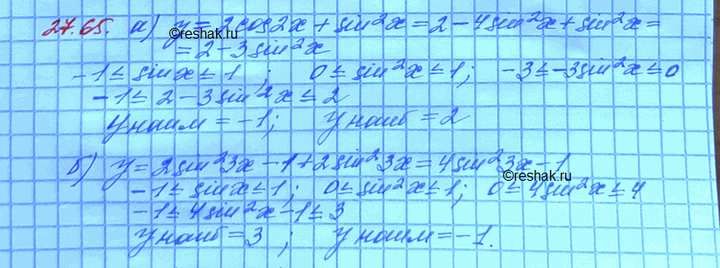 27.65. а) y = 2cos2x + sin²x = 2 - 4sin²x + sin²x =
©reshak.ru
= 2 - 3sin²x
-1 ≤ sinx ≤ 1 ; 0 ≤ sin²x ≤ 1; -3 ≤ -3sin²x ≤ 0
-1 ≤ 2 - 3sin²x ≤ 2
©reshak.ru
y наим = -1; y наиб = 2
б) y = 2sin²3x - 1 + 2sin²3x = 4sin²3x - 1
-1 ≤ sinx ≤ 1; 0 ≤ sin²x ≤ 1; 0 ≤ 4sin²x ≤ 4
©reshak.ru
-1 ≤ 4sin²x - 1 ≤ 3
y наиб = 3 ; y наим = -1.